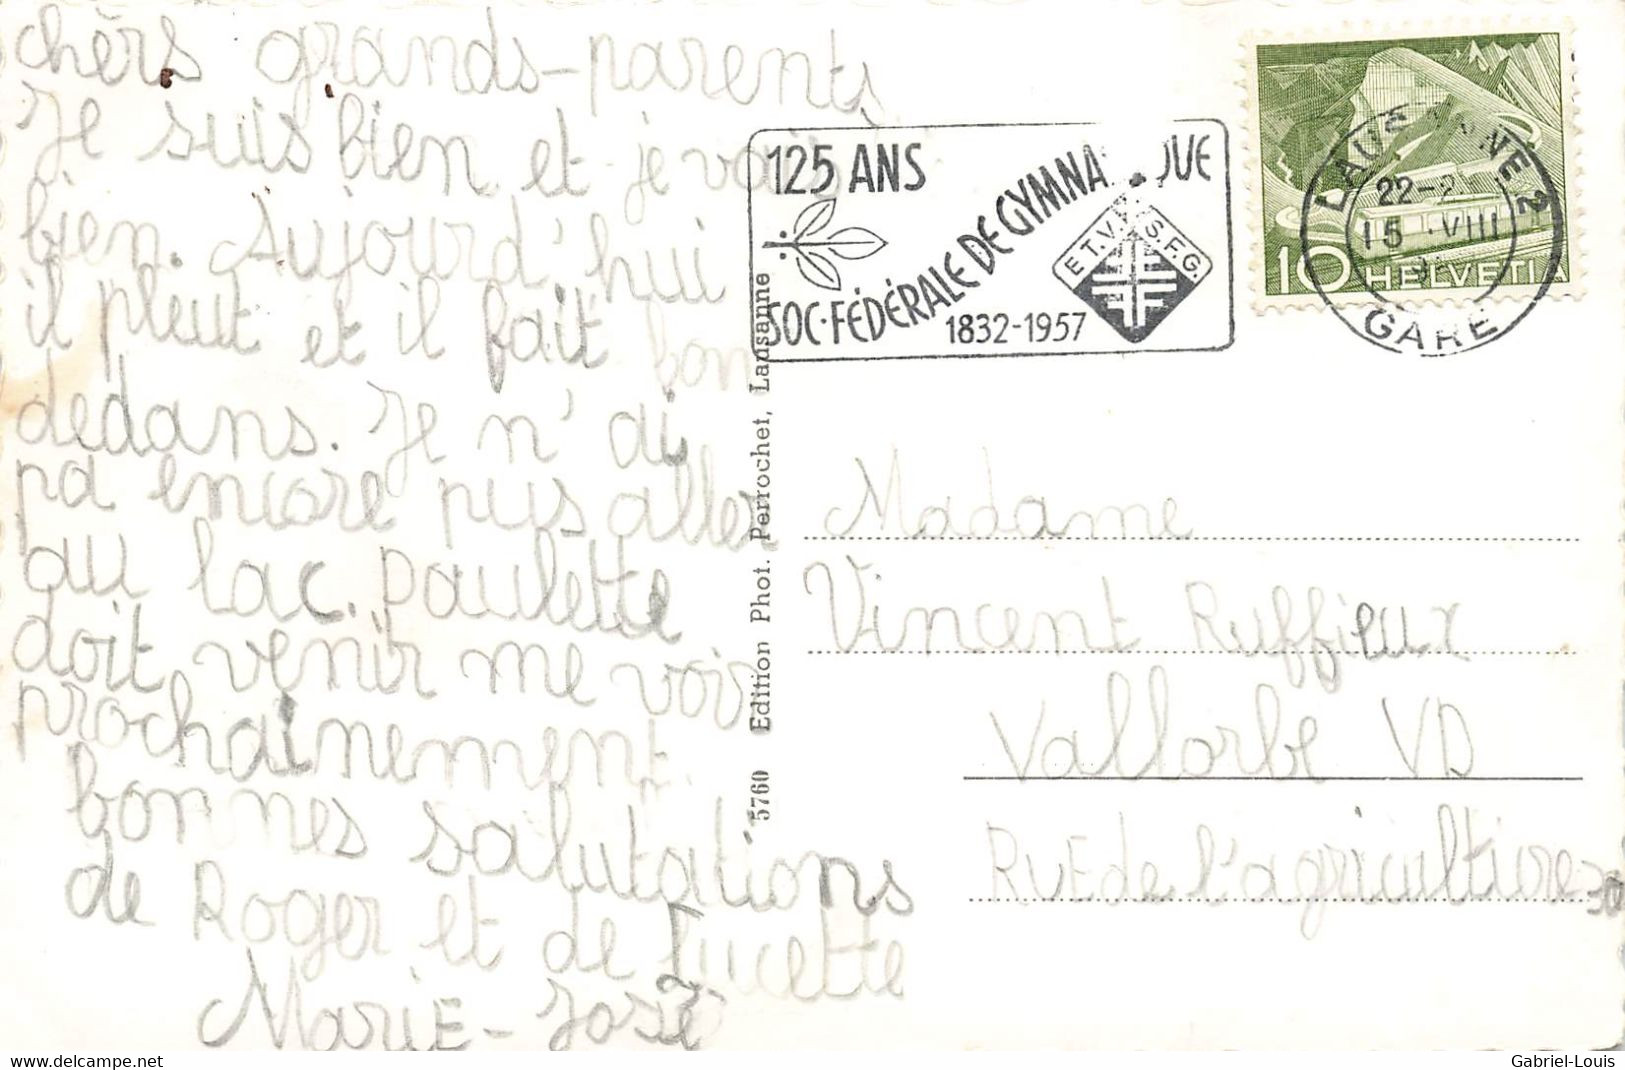 chèrs grands-parents
Je suis bien et je vais
bien. Aujourd'hui
il pleut et il fait bon
dedans. Je n'ai
pa encore pus aller
au lac. Paulette
doit venir me voir
prochainement.
bonnes salutations
de Roger et de Lucette
Marie-José
5760 Edition Phot. Perrochet, Lausanne
125 ANS
SOC. FÉDÉRALE DE GYMNA QUE
1832-1957
E.T.V. S.F.G.
22-2
15 VIII
LAUSANNE 2
GARE
10 HELVETIA
Madame
Vincent Ruffieux
Vallorbe VD
RuEde l'agricultiore 30
www.delcampe.net
Gabriel-Louis